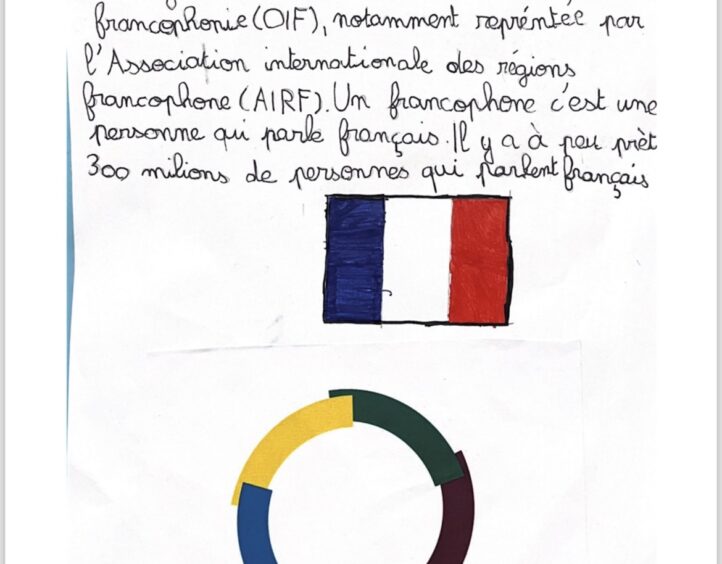 francophonie (OIF), notamment repréntée par
l'Association internationale des régions
francophone (AIRF). Un francophone c'est une
personne qui parle français. Il y a à peu prèt
300 milions de personnes qui parlent français